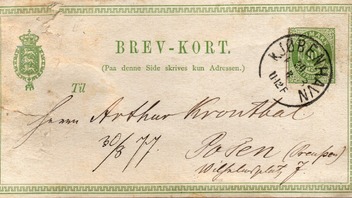 BREV-KORT.
(Paa denne Side skrives kun Adressen.)
KJØBENHAVN
Til
Herrn Arthur Kronthal
30/8 77.
Posen (Preussen)
Wilhelmsplatz 7